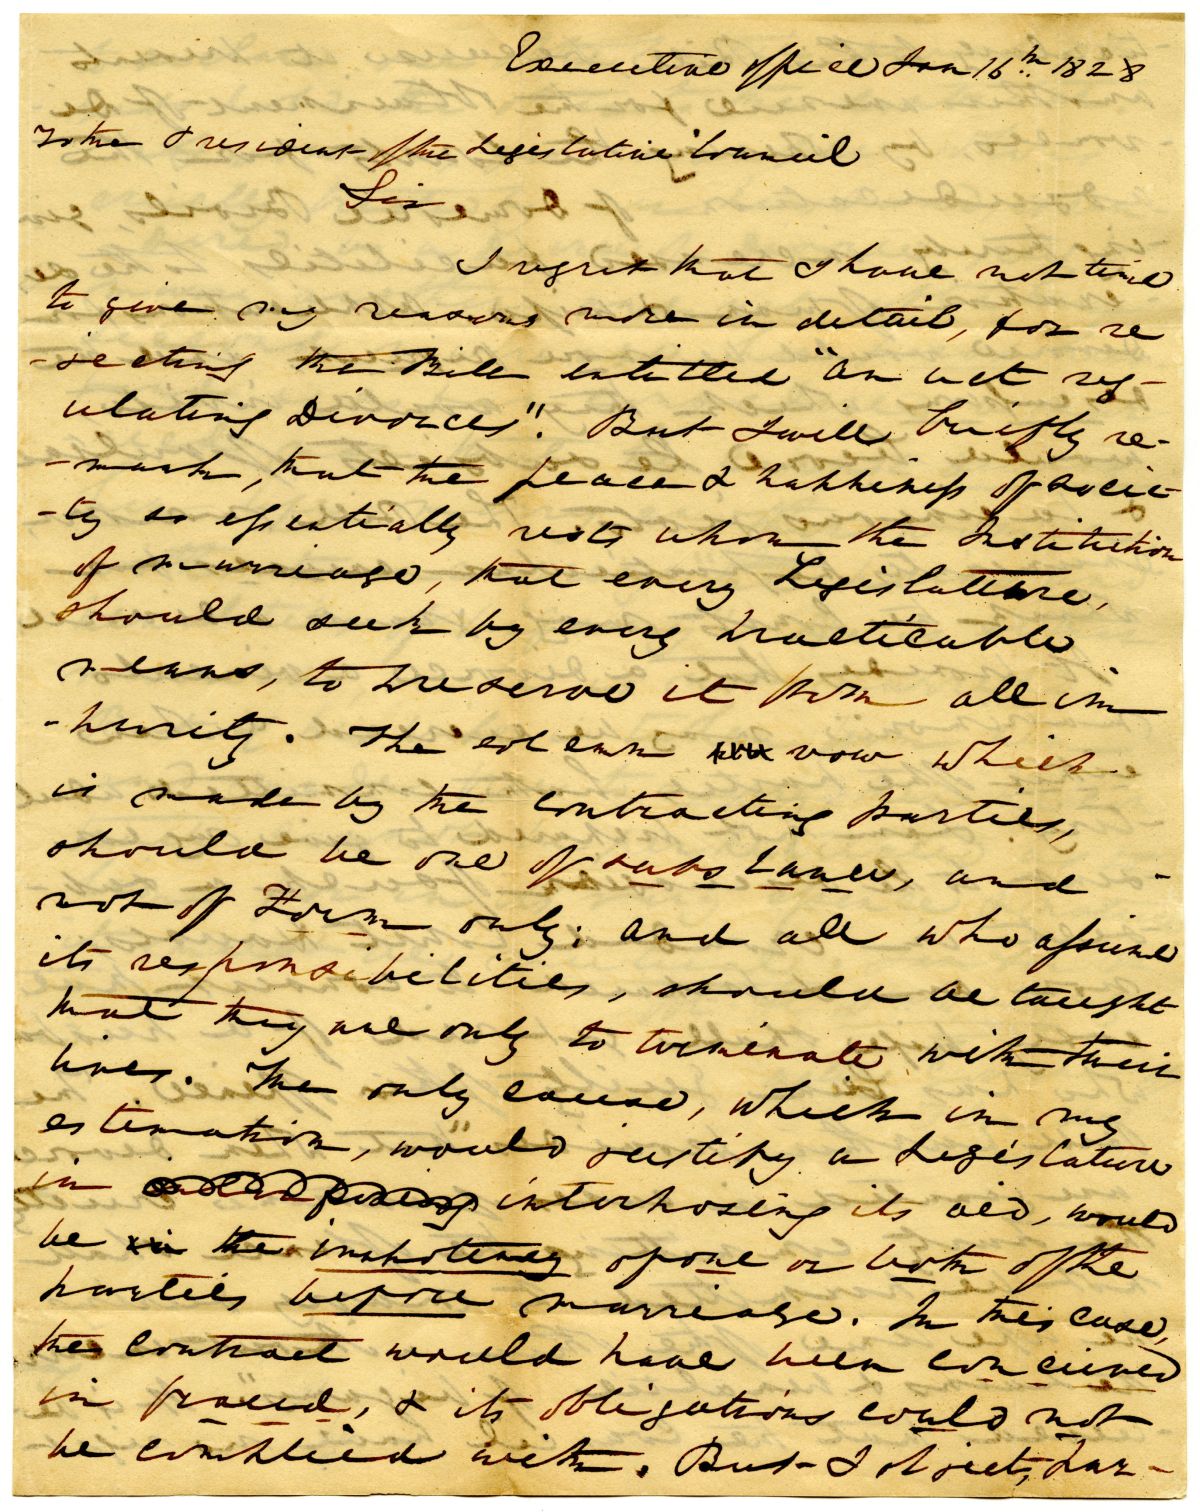 Executive office Jan 16th 1828
To the President of the Legislative Council
Sir
I regret that I have not time
to give my reasons more in detail, for re
-jecting the Bill entitled "An act reg-
ulating Divorces". But I will briefly re-
-mark, that the peace & happiness of socie-
-ty so essentially rests upon the Institution
of marriage, that every Legislature,
should seek by every practicable
means, to preserve it from all im
-purity. The solemn vow which
is made by the contracting parties,
should be one of substance, and -
not of Form only; and all who assume
its responsibilities, should be taught
that they are only to terminate with their
lives. The only cause, which in my
estimation, would justify a Legislature
in interposing its aid, would
be the impotency of one or both of the
parties before marriage. In this case,
the contract would have been conceived
in fraud, & its obligations could not
be complied with. But I object, par-